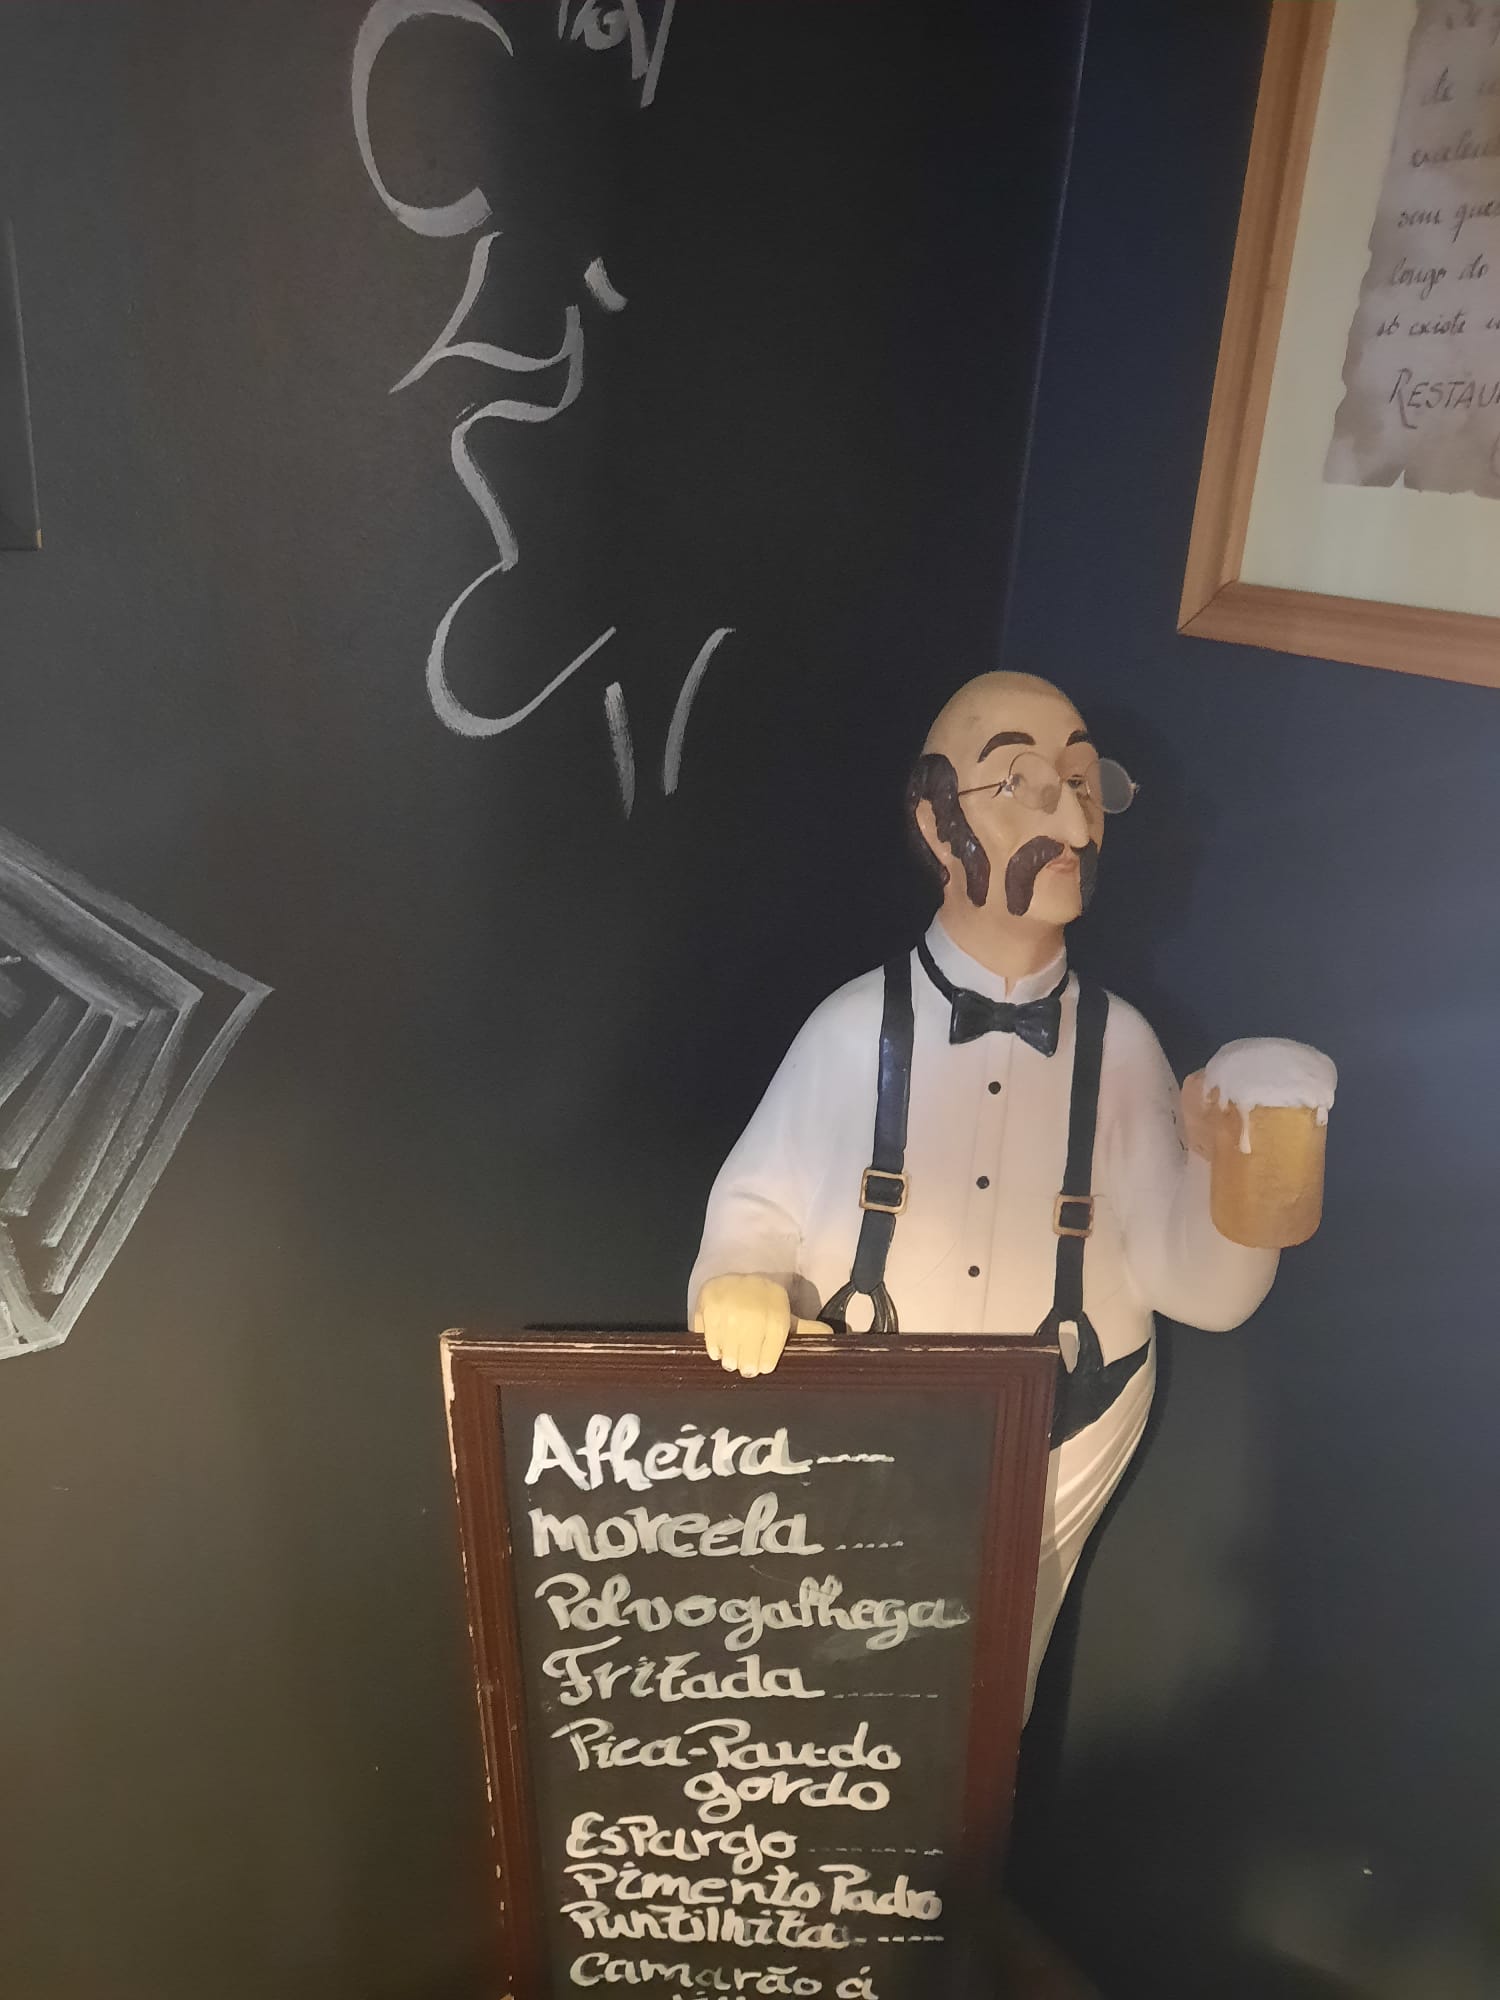 de
sem
longo do
só existe
RESTAU
Alheira
morcela
Polvo galhega
Fritada
Pica-Pau do
gordo
Espargo
Pimento Padro
Puntilhita
Camarão á